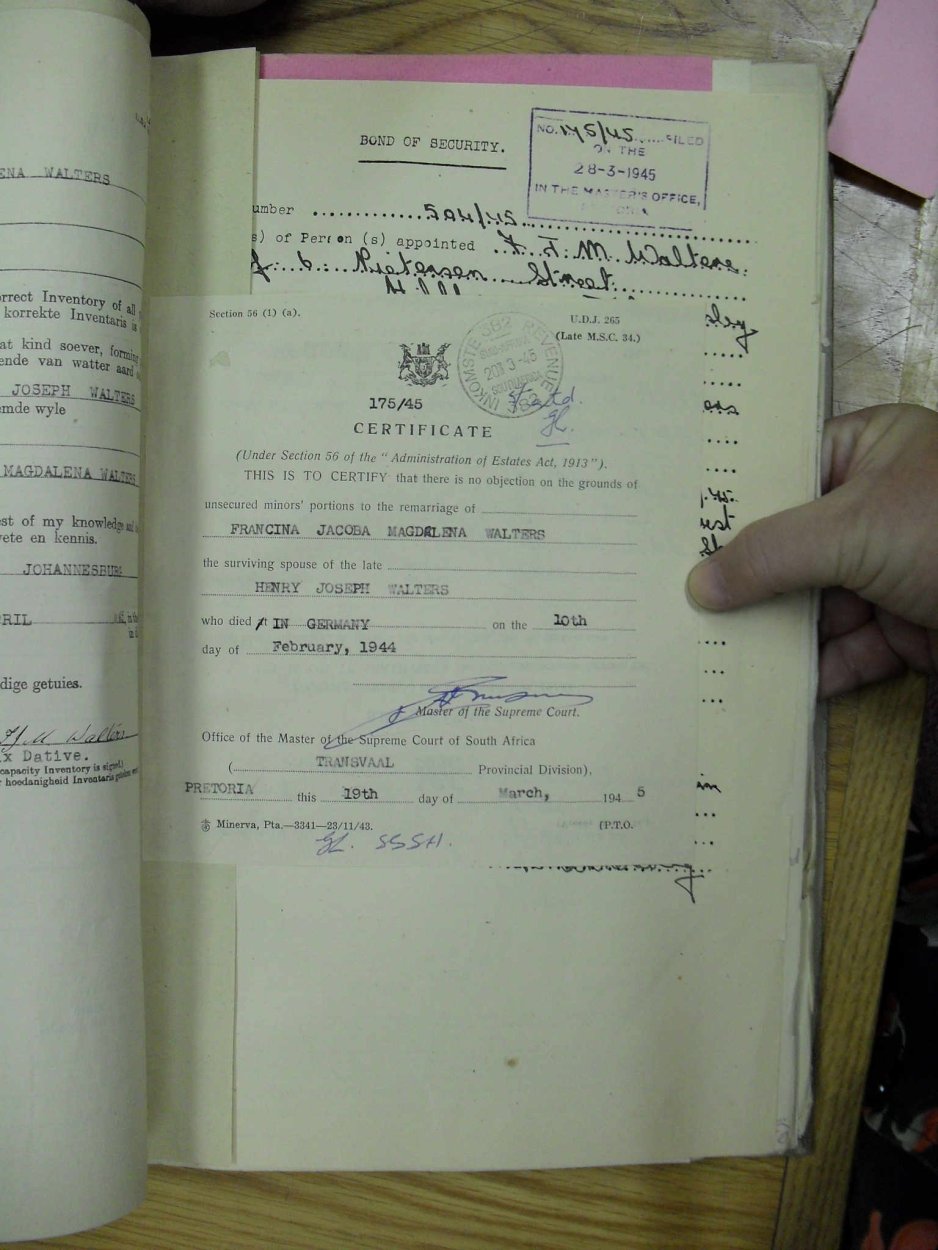 ENA WALTERS
orrect Inventory of all
korrekte Inventaris is
at kind soever, forming
ende van watter aard
JOSEPH WALTERS
emde wyle
MAGDALENA WALTERS
est of my knowledge and
vete en kennis.
JOHANNESBURG
RIL
dige getuies.
x Dative.
capacity Inventory is signed.)
hoedanigheid Inventaris
BOND OF SECURITY.
NO. 175/45 FILED
ON THE
28-3-1945
IN THE MASTER'S OFFICE,
umber 504/45
s) of Person (s) appointed F. J. M. Walters.
6. Pietersen Street.
Section 56 (1) (a).
U.D.J. 265
(Late M.S.C. 34.)
INKOMSTE 382 REVENUE 382
20 3-45
175/45
CERTIFICATE
(Under Section 56 of the "Administration of Estates Act, 1913").
THIS IS TO CERTIFY that there is no objection on the grounds of
unsecured minors' portions to the remarriage of
FRANCINA JACOBA MAGDALENA WALTERS
the surviving spouse of the late
HENRY JOSEPH WALTERS
who died IN GERMANY on the 10th
day of February, 1944
Master of the Supreme Court.
Office of the Master of the Supreme Court of South Africa
( TRANSVAAL Provincial Division),
PRETORIA this 19th day of March, 194 5
Minerva, Pta.—3341—23/11/43.
(P.T.O.